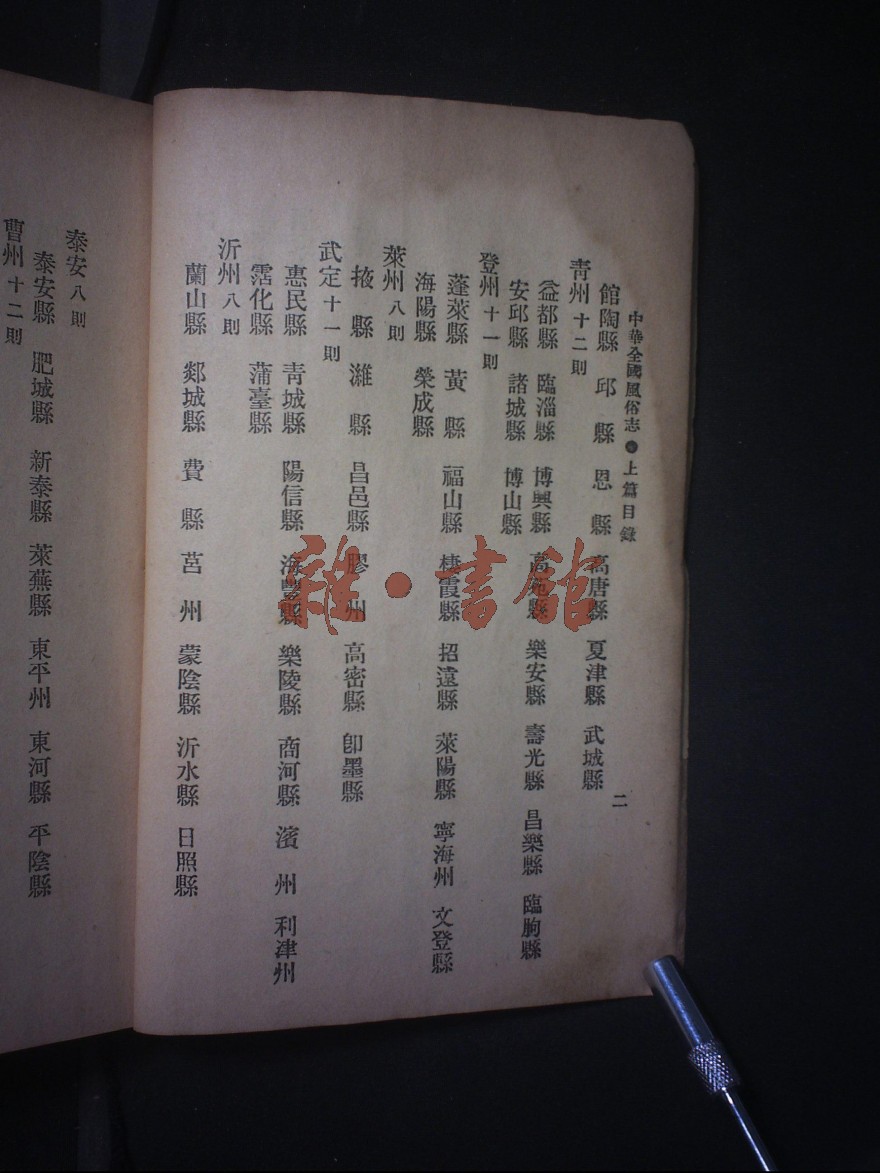 中華全國風俗志 ● 上篇目錄 二
館陶縣 邱縣 恩縣 高唐縣 夏津縣 武城縣
青州十二則
益都縣 臨淄縣 博興縣 高苑縣 樂安縣 壽光縣 昌樂縣 臨朐縣
安邱縣 諸城縣 博山縣
登州十一則
蓬萊縣 黃縣 福山縣 棲霞縣 招遠縣 萊陽縣 寧海州 文登縣
海陽縣 榮成縣
萊州八則
掖縣 濰縣 昌邑縣 膠州 高密縣 卽墨縣
武定十一則
惠民縣 青城縣 陽信縣 海豐縣 樂陵縣 商河縣 濱州 利津州
霑化縣 蒲臺縣
沂州八則
蘭山縣 郯城縣 費縣 莒州 蒙陰縣 沂水縣 日照縣
泰安八則
泰安縣 肥城縣 新泰縣 萊蕪縣 東平州 東河縣 平陰縣
曹州十二則
雜·書館